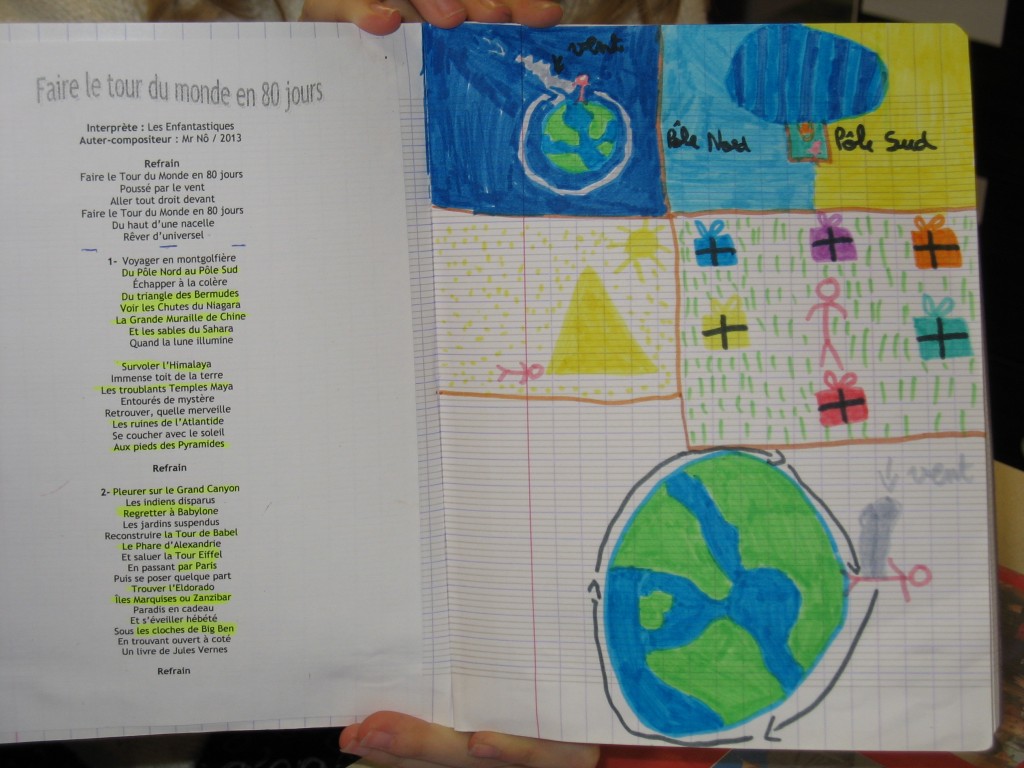 Faire le tour du monde en 80 jours
Interprète : Les Enfantastiques
Auter-compositeur : Mr Nô / 2013
Refrain
Faire le Tour du Monde en 80 jours
Poussé par le vent
Aller tout droit devant
Faire le Tour du Monde en 80 jours
Du haut d'une nacelle
Rêver d'universel
1- Voyager en montgolfière
Du Pôle Nord au Pôle Sud
Échapper à la colère
Du triangle des Bermudes
Voir les Chutes du Niagara
La Grande Muraille de Chine
Et les sables du Sahara
Quand la lune illumine
Survoler l'Himalaya
Immense toit de la terre
Les troublants Temples Maya
Entourés de mystère
Retrouver, quelle merveille
Les ruines de l'Atlantide
Se coucher avec le soleil
Aux pieds des Pyramides
Refrain
2- Pleurer sur le Grand Canyon
Les indiens disparus
Regretter à Babylone
Les jardins suspendus
Reconstruire la Tour de Babel
Le Phare d'Alexandrie
Et saluer la Tour Eiffel
En passant par Paris
Puis se poser quelque part
Trouver l'Eldorado
Îles Marquises ou Zanzibar
Paradis en cadeau
Et s'éveiller hébété
Sous les cloches de Big Ben
En trouvant ouvert à coté
Un livre de Jules Vernes
Refrain
vent
Pôle Nord
Pôle Sud
vent